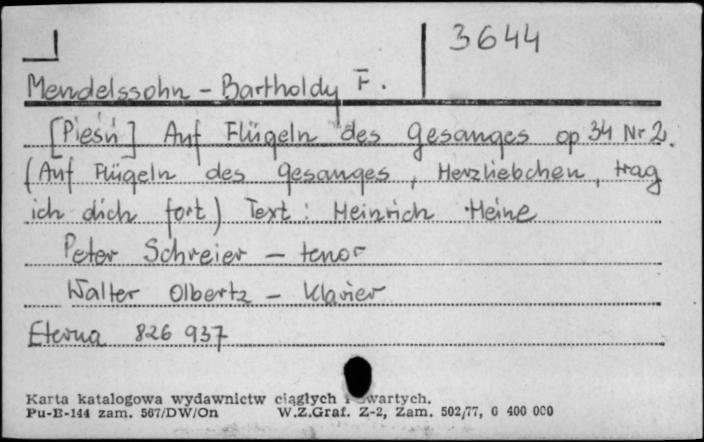 3644
Mendelssohn - Bartholdy F.
[Pieśń] Auf Flügeln des Gesanges op 34 Nr 2.
(Auf Flügeln des Gesanges, Herzliebchen, trag
ich dich fort) Text: Heinrich Heine
Peter Schreier - tenor
Walter Olbertz - Klavier
Eterna 826 937
Karta katalogowa wydawnictw ciągłych i zwartych.
Pu-B-144 zam. 567/DW/On W.Z.Graf. Z-2, Zam. 502/77, 6 400 000